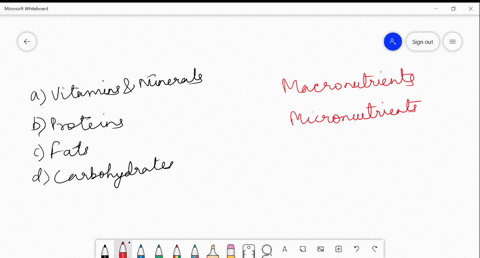 Microsoft Whiteboard
Sign out
a) Vitamins & Minerals
b) Proteins
c) Fats
d) Carbohydrates
Macronutrients
Micronutrients
A